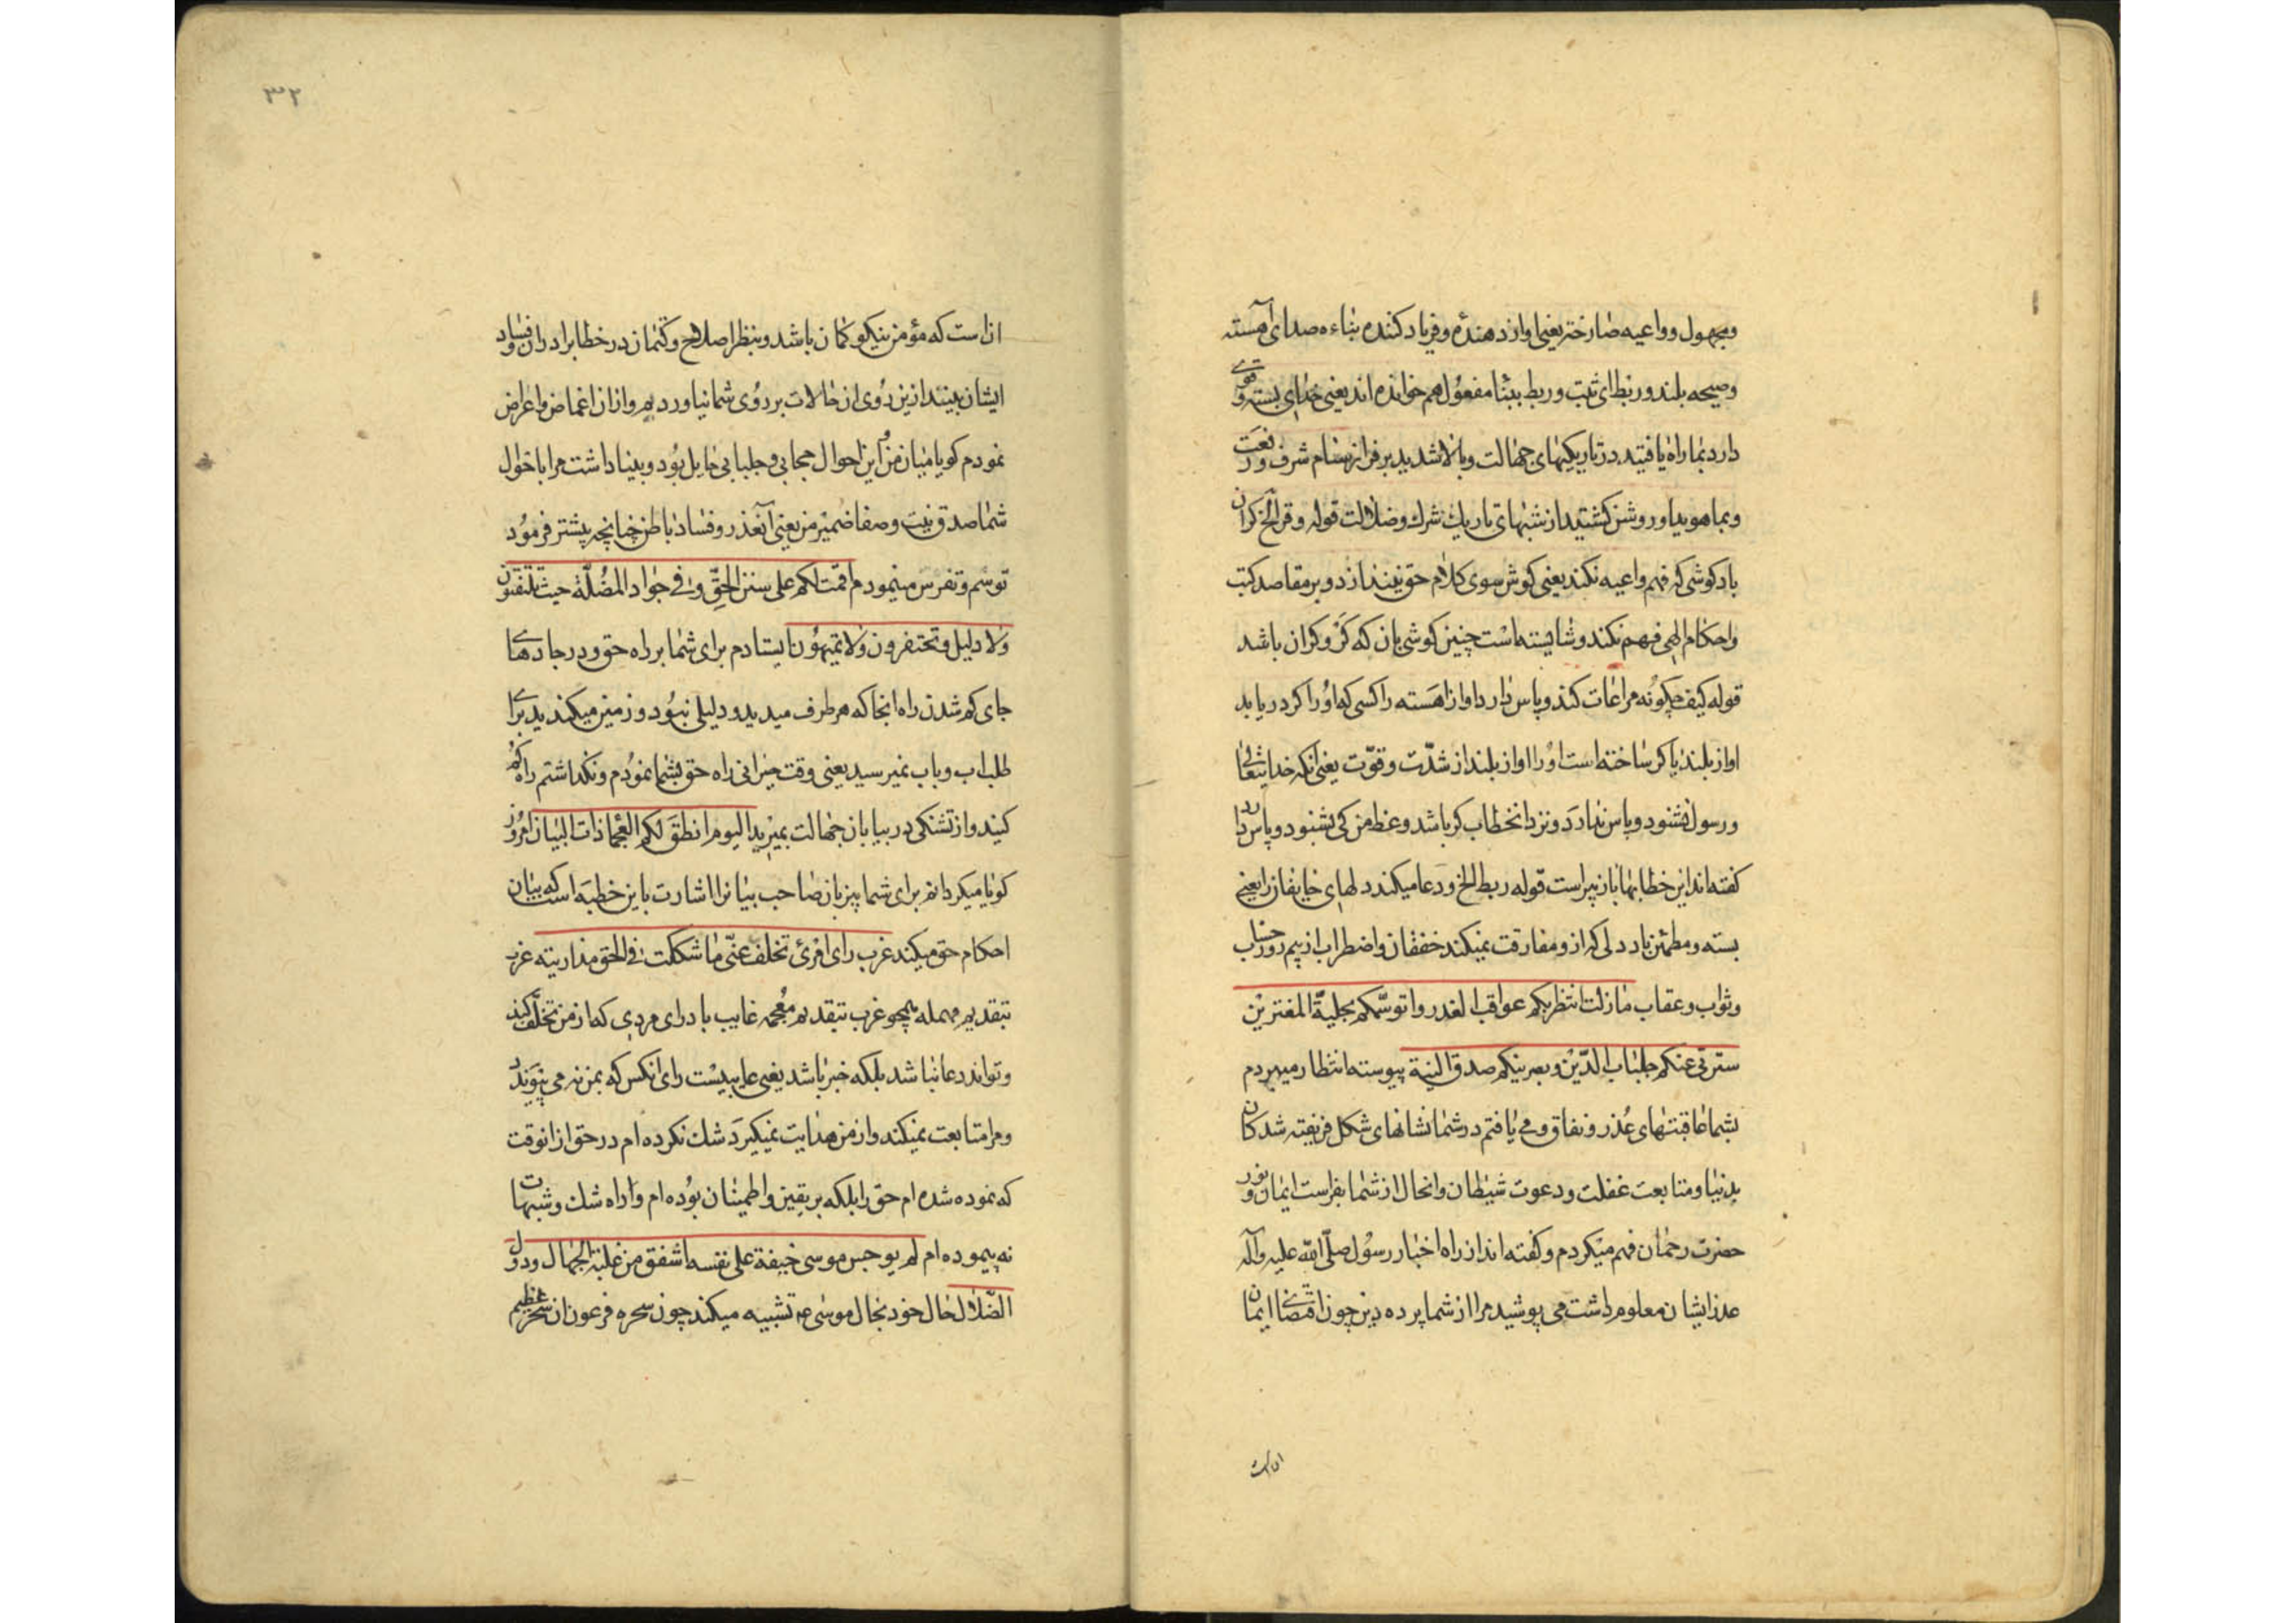 ومجهول وواعیه صارخه یعنی اواز دهنده و فریاد کننده بناءه صدای آهسته
وصیحه بلند وربط ای ثبت وربط ببنا مفعول هم خوانده اند یعنی خدای بسته و قوی
دارد بما راه یافتید در تاریکیهای جهالت و بالا شدید بر فراز سنام شرف و رفعت
وبما هویدا و روشن کشتید از شبهای تاریك شرك وضلالت قوله وقر الخ کران
باد کوشی که فهم واعیه نکند یعنی کوش سوی کلام حق نیندازد و بر مقاصد کتب
واحکام الهی فهم نکند و شایسته است چنین کوشی بان که کر و کران باشد
قوله کیف چکونه مراعات کند و پاس دارد اواز اهسته را کسی که او را کر دریابد
اواز بلند یا کر ساخته است او را اواز بلند از شدّت و قوّت یعنی انکه خدایتعالی
ورسول نشنود و پاس ندارد و نزد انخطاب کر باشد وعظ من کی بشنود و پاس دارد
کفته اند این خطابها بازبیر است قوله ربط الخ ودعا میکند دلهای خایفان را یعنی
بسته و مطمئن باد دلی که ازو مفارقت نمیکند خفقان واضطراب از بیم روز حساب
وثواب وعقاب مازلت انتظر بکم عواقب الغدر واتوسّمکم بحلیّة المغترین
سترنی عنکم جلباب الدّین وبصرنیکم صدق النیة پیوسته انتظار میبردم
بشما عاقبتهای غدر و نفاق و می یافتم در شما نشانهای شکل فریفته شدکان
بدنیا و متابعت غفلت و دعوت شیطان و انحال از شما بفراست ایمان و نور
حضرت رحمان فهم میکردم و کفته اند از راه اخبار رسول صلّی الله علیه وآله
عذر ایشان معلوم داشت می پوشید مرا از شما پرده دین چون اقتضای ایمان
ان است
ان است که مؤمن نیکو کمان باشد و بنظر اصلاح و کتمان در خطا برادران و فساد
ایشان بیند ازین روی ان حالات بر روی شما نیاوردیم و ازان اغماض واعراض
نمودم کویا میان من و این احوال حجابی و جلبابی حایل بود و بینا داشت مرا باحوال
شما صدق نیت و صفا ضمیر من یعنی آنغدر و فساد باطن چنانچه پیشتر فرمود
توسّم وتفرّس مینمودم اقمت لکم علی سنن الحقّ وفی جواد المضلّة حیث تلتقون
ولا دلیل وتحتفرون ولا تمیهون ایستادم برای شما بر راه حق و در جادهای
جای کم شدن راه انجا که هر طرف میدیدید و دلیلی نبود و زمین میکندید برای
طلب اب و باب نمیرسید یعنی وقت حیرانی راه حق بشما نمودم و نکذاشتم راه کم
کنید و از تشنکی در بیابان جهالت بمیرید الیوم انطق لکم العجماء ذات البیان امروز
کویا میکردانم برای شما بیزبان صاحب بیانرا اشارت باین خطبه است که بیان
احکام حق میکند غرب رای امرئ تخلف عنّی ما شککت فی الحق مذ اریته عزب
بتقدیم مهمله همچو غرب بتقدیم معجمه غایب باد رای مردی که از من تخلّف کند
وتواند دعا نباشد بلکه خبر باشد یعنی غایبست رای انکس که بمن نه می پیوندد
ومرا متابعت نمیکند و از من هدایت نمیکیرد شك نکرده ام در حق از انوقت
که نموده شده ام حق را بلکه بر یقین واطمینان بوده ام و راه شك و شبهات
نه پیموده ام لم یوجس موسی خیفة علی نفسه اشفق من غلبة الجهال ودول
الضّلال حال خود بحال موسی ع تشبیه میکند چون سحره فرعون ان سحر عظیم
۳۲